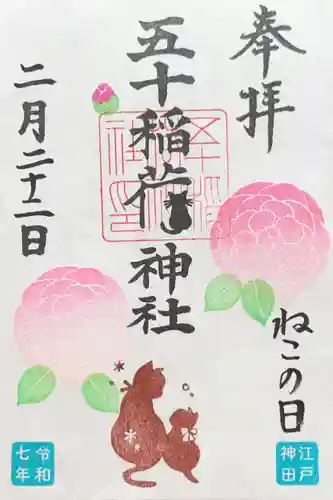 奉拝
ねこの日
江戸
神田
五十稲荷神社
二月二十二日
令和
七年